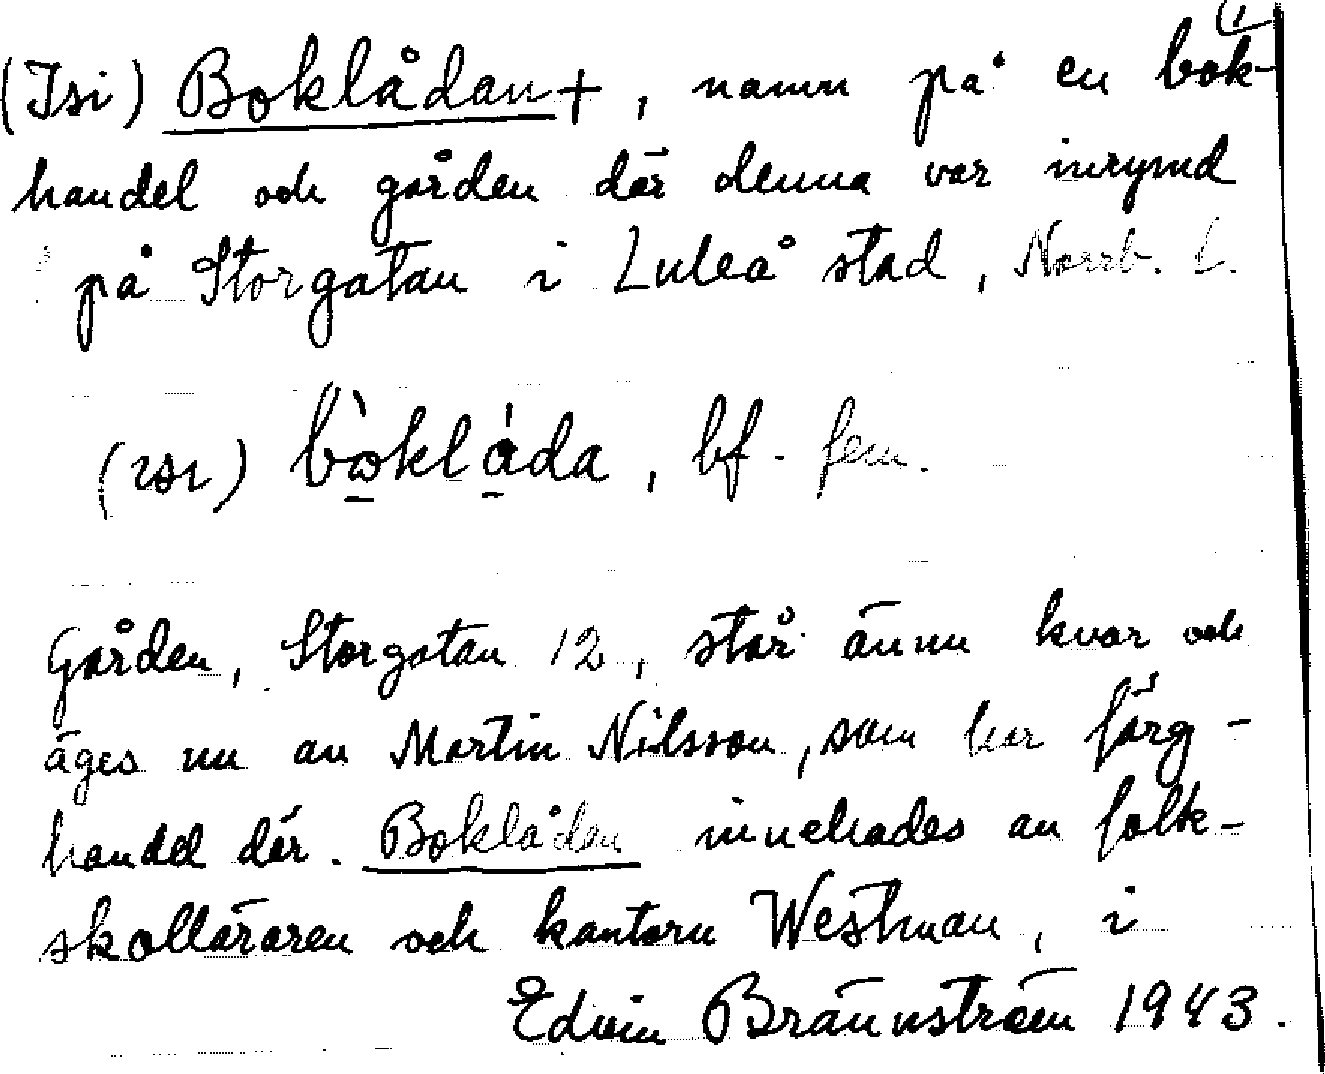 (1
(Isi) Boklådan+, namn på en bok-
handel och gården där denna var inrymd
på Storgatan i Luleå stad, Norrb. l.
(ısı) bòklàda, bf. fem.
Gården, Storgatan 12, står ännu kvar och
äges nu av Martin Nilsson, som har färg-
handel där. Boklådan innehades av folk-
skolläraren och kantorn Westman, i
Edvin Brännström 1943.